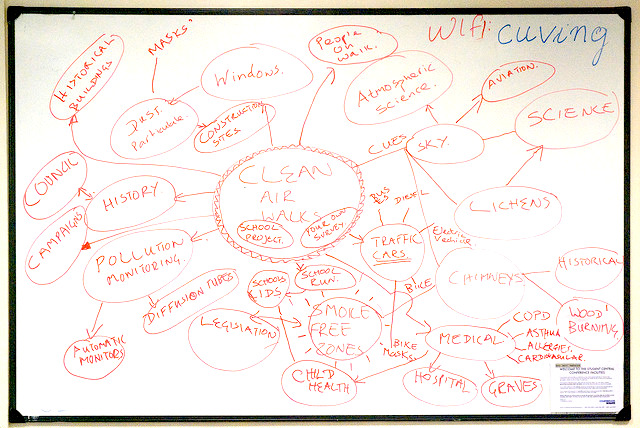 WIFI: cuving
MASKS
HISTORICAL
BUILDINGS
Windows.
People
on
walk.
Atmospheric
Science.
AVIATION.
SCIENCE
DUST.
Particulate.
CONSTRUCTION
SITES
CUES
SKY.
COUNCIL
HISTORY
CLEAN
AIR
WALKS
SCHOOL
PROJECT.
YOUR OWN
SURVEY
BUS
DIESEL
LICHENS
CAMPAIGNS
POLLUTION
MONITORING.
TRAFFIC
CARS.
Electric
Vechicle.
CHIMNEYS
HISTORICAL
DIFFUSION TUBES
SCHOOLS
KIDS
SCHOOL
RUN.
BIKE
WOOD
BURNING.
LEGISLATION
SMOKE
FREE
ZONES
BIKE
MASKS
MEDICAL
COPD
ASTHMA
ALLERGIES.
CARDIOVASULAR.
AUTOMATIC
MONITORS
CHILD
HEALTH
HOSPITAL
GRAVES
WELCOME TO THE STUDENT CENTRAL
CONFERENCE FACILITIES